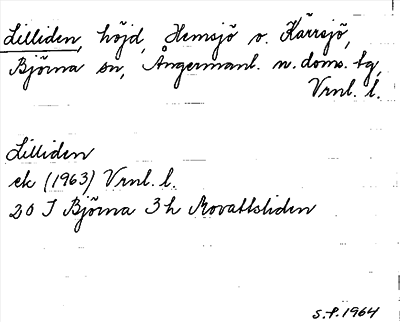 Lilliden, höjd, Hemsjö o. Kärrsjö,
Björna sn, Ångermanl. n. doms. tg,
Vrnl. l.
Lilliden
ek (1963) Vrnl. l.
20 I Björna 3 h Movattsliden
S.P. 1964